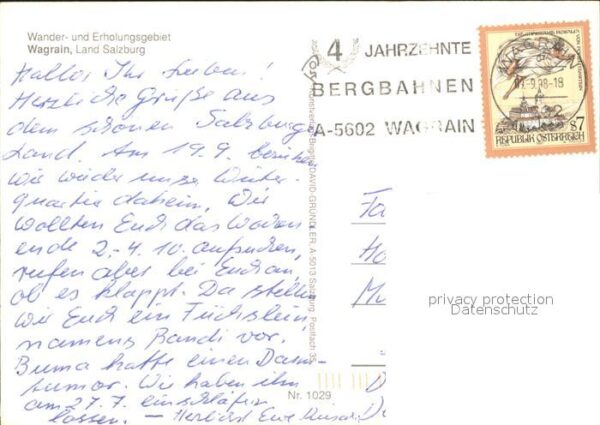 Wander- und Erholungsgebiet
Wagrain, Land Salzburg
Hallo, Ihr Lieben!
Herzliche Grüße aus
dem schönen Salzburger
Land. Am 19.9.
wir wieder unser Winter-
quartier daheim. Wir
wollten Euch das Wochen
ende 2.-4.10. aufsuchen,
rufen aber bei Euch an,
ob es klappt. Da stellen
wir Euch ein Füchslein
namens Bandi vor.
Buma hatte einen Darm-
tumor. Wir haben ihn
am 27.7. einschläfern
lassen. — Herzlichst Eure
4 JAHRZEHNTE
BERGBAHNEN
A-5602 WAGRAIN
WAGRAIN
.9.98-18
S7
REPUBLIK ÖSTERREICH
Brigitte DAVID-GRÜNDLER, A-5013 Salzburg, Postfach 35
Fa
Ho
Mu
D
Nr. 1029
privacy protection
Datenschutz